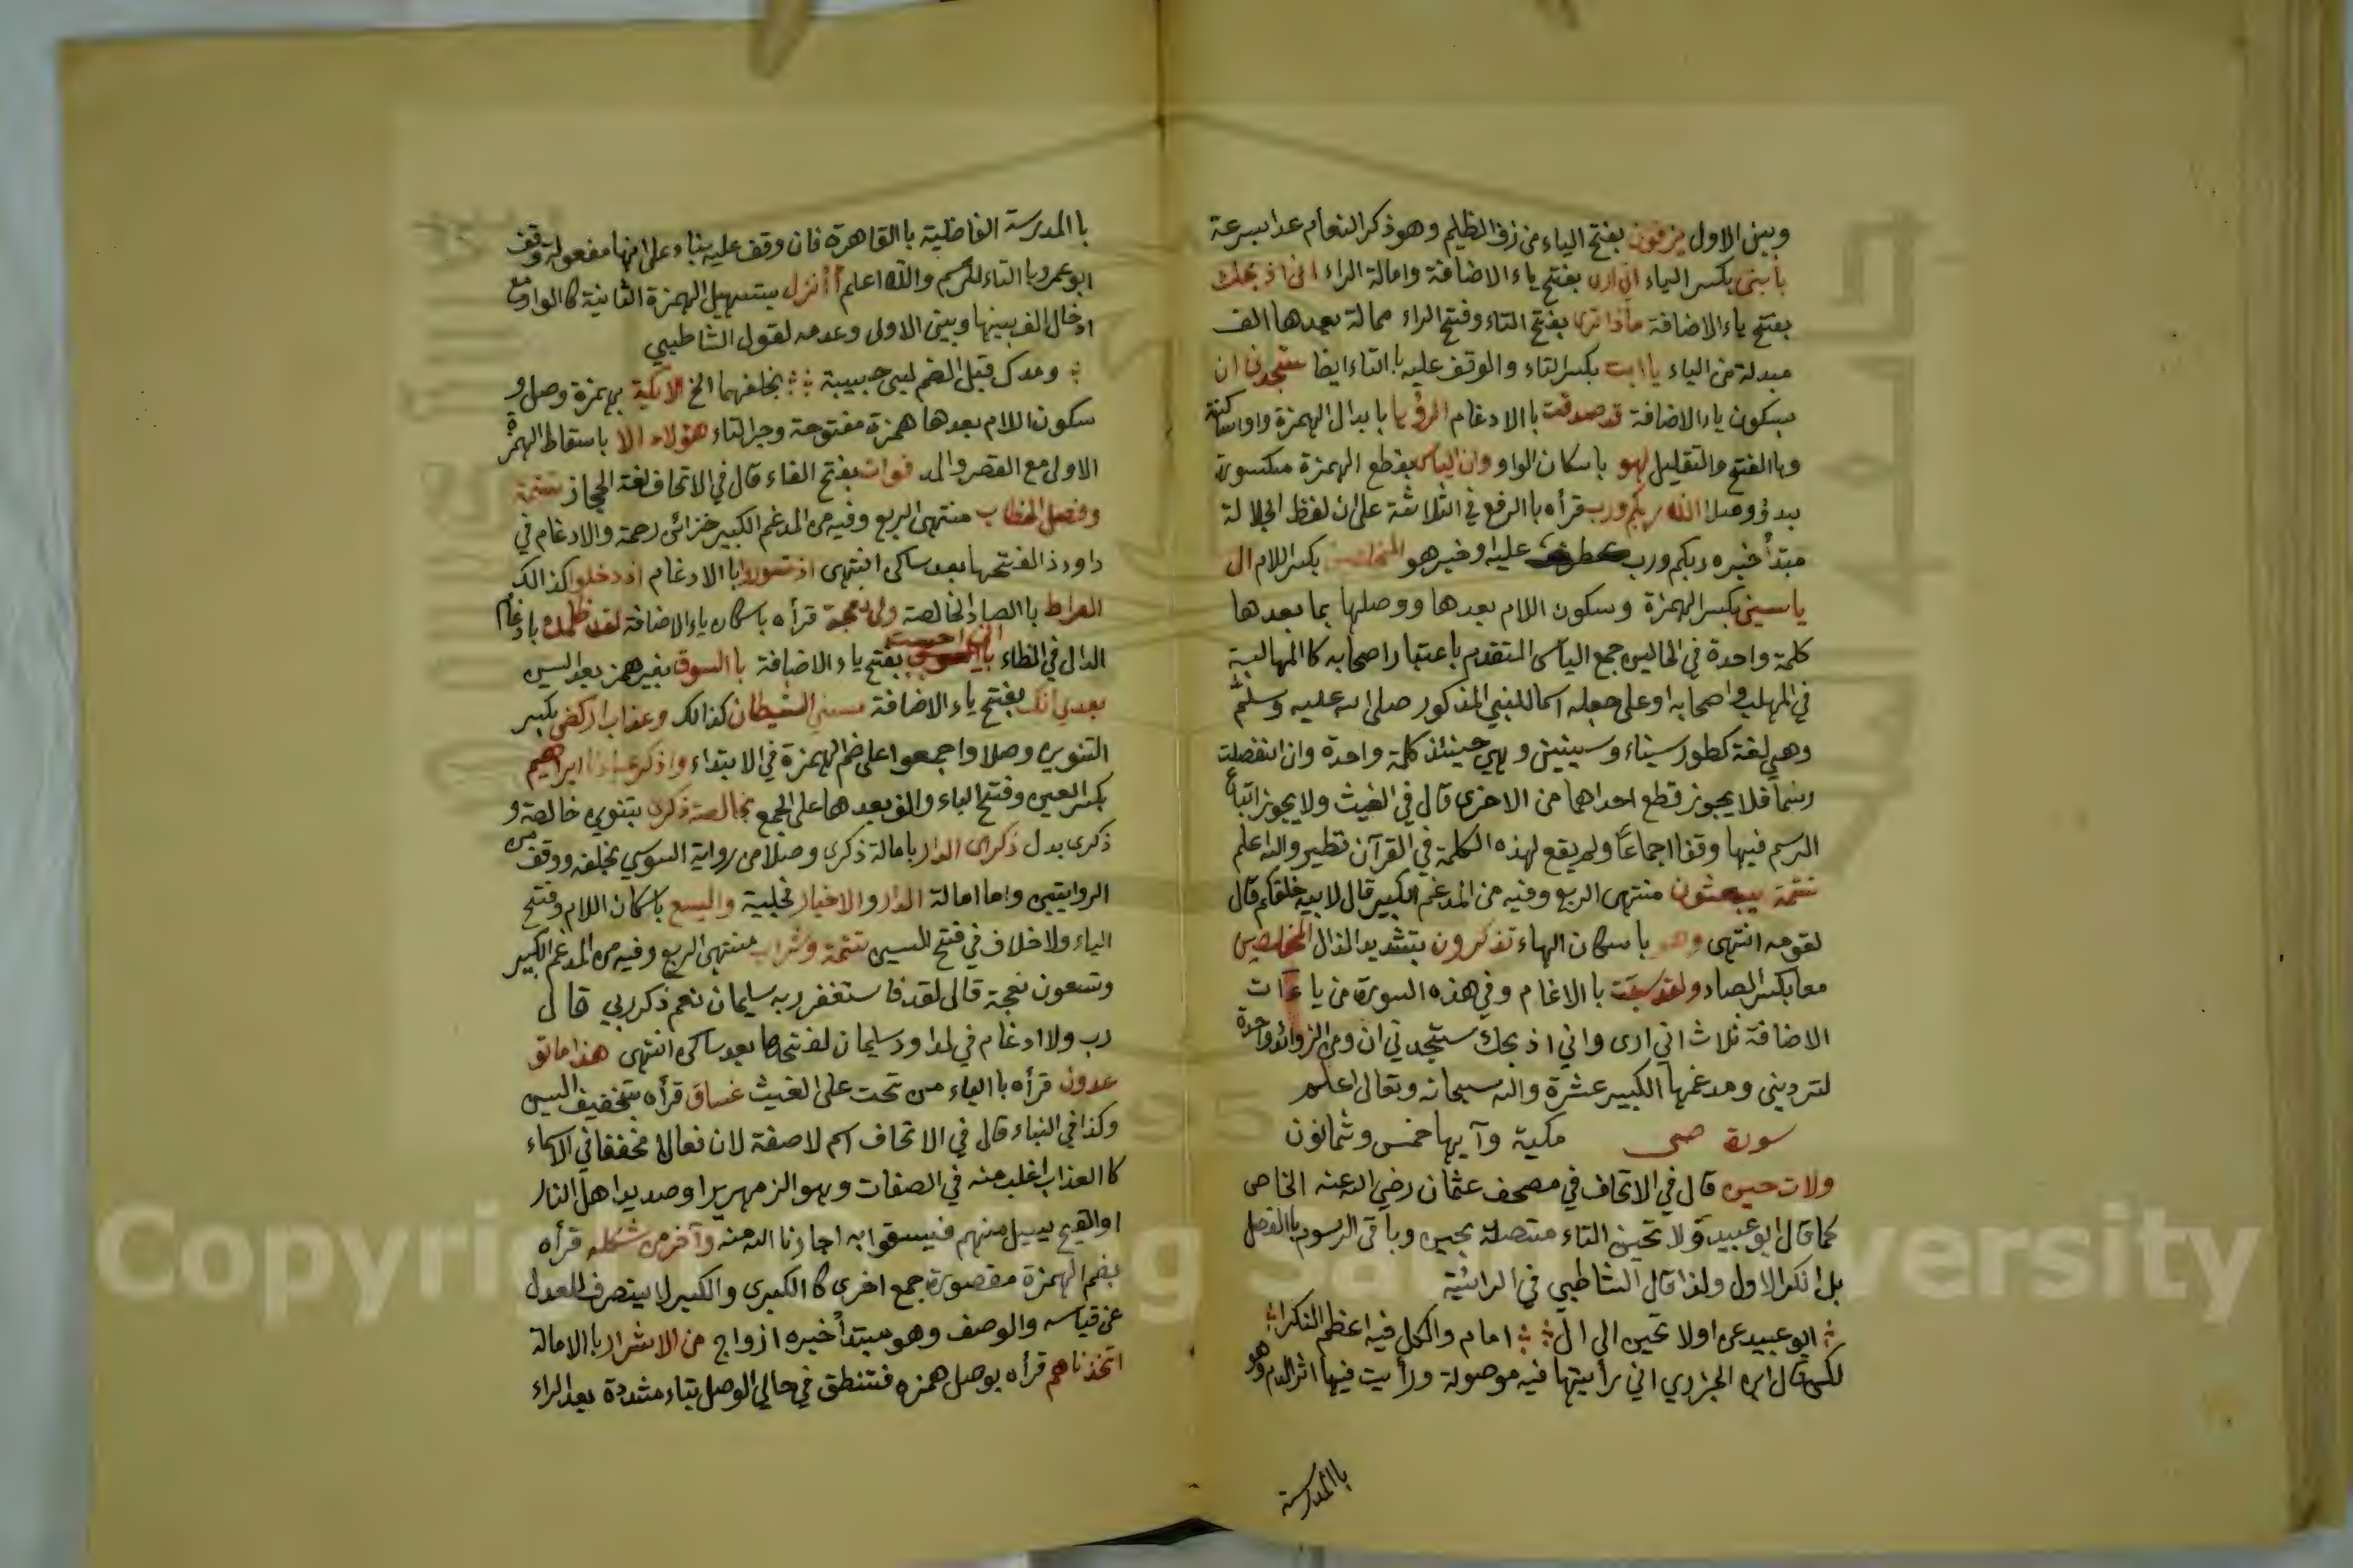 وبين الاول يزفون بفتح الياء من زف الظليم وهو ذكر النعام عدا بسرعة
يابني بكسر الياء اني ارى بفتح ياء الاضافة وامالة الراء اني اذبحك
بفتح ياء الاضافة ماذا ترى بفتح التاء وفتح الراء ممالة بعدها الف
مبدلة من الياء ياابت بكسر التاء والوقف عليه باالتاء ايضا ستجدني ان
بسكون ياء الاضافة قد صدقت باالادغام الرؤيا بابدال الهمزة واوا ساكنة
وباالفتح والتقليل لهو باسكان الواو وان الياس بقطع الهمزة مكسورة
بدؤ ووصلا الله ربكم ورب قرأه باالرفع في الثلاثة على ان لفظ الجلالة
مبتدأ خبره ربكم ورب عطف عليه او خبر هو المخلصين بكسر اللام ال
ياسين بكسر الهمزة وسكون اللام بعدها ووصلها بما بعدها
كلمة واحدة في الحالين جمع الياس المتقدم باعتبار اصحابه كاالمهالبة
في المهلب واصحابه او على جعله اسما للنبي المذكور صلى الله عليه وسلم
وهي لغة كطور سيناء وسينين وهي حينئذ كلمة واحدة وان انفصلت
رسما فلا يجوز قطع احداهما من الاخرى قال في الغيث ولا يجوز اتباع
الرسم فيها وقفا اجماعاً ولم يقع لهذه الكلمة في القرآن نظير والله اعلم
تتمة يبعثون منتهى الربع وفيه من المدغم الكبير قال لابيه خلقكم قال
لقومه انتهى وهو باسكان الهاء تذكرون بتشديد الذال المخلصين
معا بكسر الصاد ولقد سبقت باالاغام وفي هذه السورة من ياءآت
الاضافة ثلاث اني ارى واني اذبحك ستجدني ان ومن الزوائد واحدة
لتردينى ومدغمها الكبير عشرة والله سبحانه وتعالى اعلم
سورة ص مكية وآيها خمس وثمانون
ولات حين قال في الاتحاف في مصحف عثمان رضي الله عنه الخاص
كما قال ابو عبيد ولا تحين التاء متصلة بحين وباقي الرسوم باالفصل
بل انكر الاول ولذا قال الشاطبي في الرائية
ابو عبيد عن اولا تحين الى ال امام والكل فيه اعظم النكرا
لكن قال ابن الجزري اني رأيتها فيه موصولة ورأيت فيها اثر الدم وهو
باالمدرسة
باالمدرسة الفاضلية باالقاهرة فان وقف عليه بناء على انها مفعوله وقف
ابو عمرو باالتاء للرسم والله اعلم أأنزل بتسهيل الهمزة الثانية كاالواو مع
ادخال الف بينها وبين الاولى وعدمه لقول الشاطبي
ومدك قبل الضم لبى حبيبه بخلفهما الخ الايكة بهمزة وصل و
سكون اللام بعدها همزة مفتوحة وجر التاء هؤلاء الا باسقاط الهمزة
الاولى مع القصر والمد فواق بفتح الفاء قال في الاتحاف لغة الحجاز تتمة
وفصل الخطاب منتهى الربع وفيه من المدغم الكبير خزائن رحمة والادغام في
داود ذا لفتحها بعد ساكن انتهى اذ تسوروا باالادغام اذ دخلوا كذالك
الصراط باالصاد الخالصة ولي نعجة قرأه باسكان ياء الاضافة لقد ظلمك بادغام
الدال في الظاء اني احببت بفتح ياء الاضافة باالسوق بغير همز بعد السين
بعدي انك بفتح ياء الاضافة مسني الشيطان كذالك وعذاب اركض بكسر
التنوين وصلا واجمعوا على ضم الهمزة في الابتداء واذكر عبادنا ابراهيم
بكسر العين وفتح الباء والف بعدها على الجمع بخالصة ذكرى بتنوين خالصة و
ذكرى بدل ذكرى الدار بامالة ذكرى وصلا من رواية السوسي بخلفه ووقف من
الروايتين واما امالة الدار والاخيار فجلية واليسع باسكان اللام وفتح
الياء ولا خلاف في فتح السين تتمة وشراب منتهى الربع وفيه من المدغم الكبير
وتسعون نعجة قال لقد فاستغفر ربه سليمان نعم ذكر ربي قال
رب ولا ادغام في لداود سليمان لفتحها بعد ساكن انتهى هذا ماتو
عدون قرأه باالياء من تحت على الغيث غساق قرأه بتخفيف السين
وكذا في النباء قال في الاتحاف اسم لا صفة لان فعالا مخففا في الاسماء
كاالعذاب اغلب منه في الصفات وهو الزمهرير او صديد اهل النار
او القيح يسيل منهم فيسقوا به اجارنا الله منه وآخر من شكله قرأه
بضم الهمزة مقصورة جمع اخرى كاالكبرى والكبر لا يتصرف للعدل
عن قياسه والوصف وهو مبتدأ خبره ازواج من الاشرار باالامالة
اتخذناهم قرأه بوصل همزه فتنطق في حالي الوصل بتاء مشددة بعد الراء